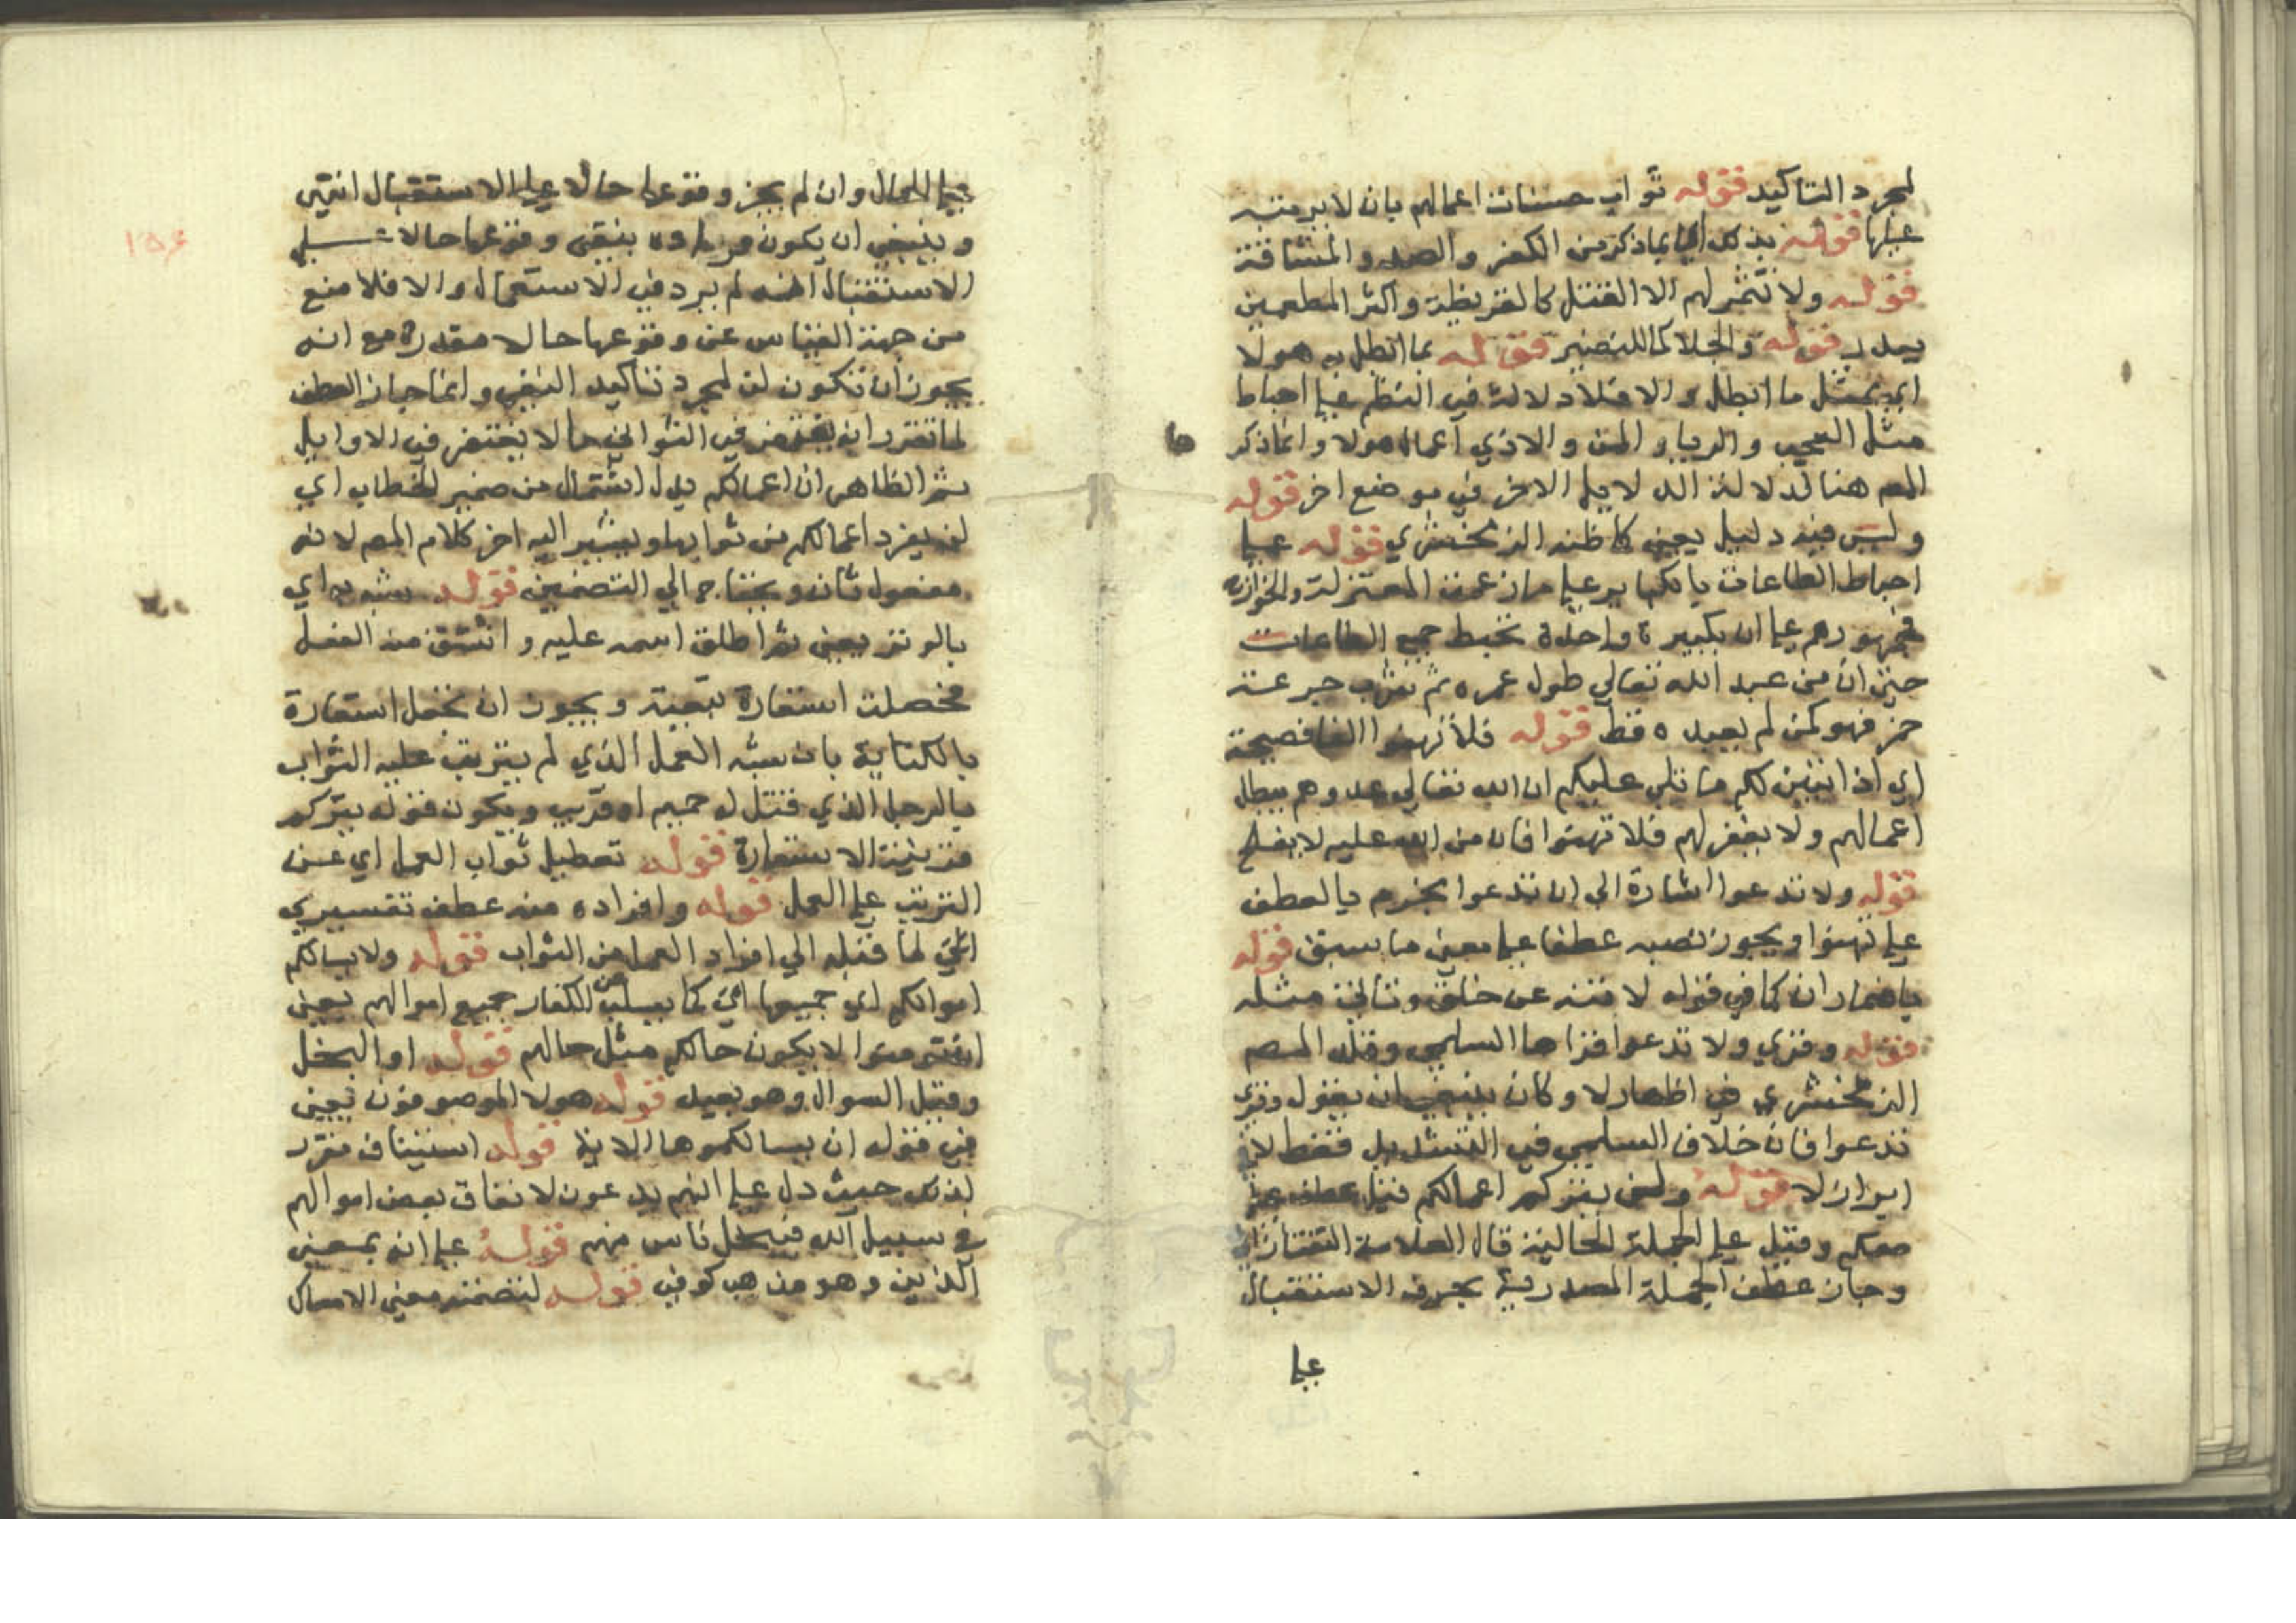 لمجرد التاكيد قوله ثواب حسنات اعمالهم بان لا يرتبه
عليها قوله بذلك اي بما ذكر من الكفر والصد والمشاقة
قوله ولا تثمر لهم الا القتل كالقريظة واكثر المطعمين
ببدر قوله والجلا كما للنضير قوله بما ابطل به هولا
اي بمثل ما ابطل و الا فلا دلالة في النظم على احباط
مثل العجب والريا والمن والاذي اعمال هولا وانما ذكر
المص هنا لدلالة الدلايل الاخر في موضع اخر قوله
وليس فيه دليل يعني كما ظنه الزمخشري قوله على
احباط الطاعات بالكباير على ما زعمت المعتزلة والخوارج
فجمهورهم على ان بكبيرة واحدة تحبط جميع الطاعات
حتى ان من عبد الله تعالي طول عمره ثم شرب جرعة
خمر فهو كمن لم يعبده قط قوله فلا تهنوا الفا فصيحة
اي اذا تبين لكم ما تلي عليكم ان الله تعالي عدوهم يبطل
اعمالهم ولا يغفر لهم فلا تهنوا فان من الله عليه لا يفلح
قوله ولا تدعوا اشارة الي ان تدعوا بجزم بالعطف
على تهنوا ويجوز نصبه عطفا على معني ما سبق قوله
باضمار ان كما في قوله لا تنه عن خلق وتاتي مثله
قوله وقري ولا تدعوا قراها السلمي وقلد المص
الزمخشري في اظهار لا وكان ينبغي ان يقول وقري
تدعوا فان خلاف السلمي في التشديد فقط لا في
ايراد لا قوله ولن يتركم اعمالكم قيل عطف على
معكم وقيل على الجملة الحالية قال العلامة التفتازاني
وجاز عطف الجملة المصدرية بحرف الاستقبال
على
١٥٤
على الحال وان لم يجز وقوعها حالا على الاستقبال انتهى
وينبغي ان يكون مراده بنفي وقوعها حالا على
الاستقبال انه لم يرد في الاستعمال والا فلا منع
من جهة القياس عن وقوعها حالا مقدرة مع انه
يجوز ان تكون لن لمجرد تاكيد النفي وانما جاز العطف
لما تقرر انه يغتفر في الثواني ما لا يغتفر في الاوايل
ثم الظاهر ان اعمالكم بدل اشتمال من ضمير الخطاب اي
لن يفرد اعمالكم من ثوابها ويشير اليه اخر كلام المص لا انه
مفعول ثان ويحتاج الي التضمين قوله شبه به اي
بالوتر يعني ثم اطلق اسمه عليه واشتق منه الفعل
فحصلت استعارة تبعية ويجوز ان تجعل استعارة
بالكناية بان شبه العمل الذي لم يترتب عليه الثواب
بالرجل الذي قتل له حميم او قريب ويكون قوله يتركم
قرينة الاستعارة قوله تعطيل ثواب العمل اي عن
الترتب على العمل قوله وافراده منه عطف تفسيري
اتي لما قبله الي افراد العمل من الثواب قوله ولا يسالكم
اموالكم اي جميعها اي كما يسلب من الكفار جميع اموالهم يعني
ان تومنوا لا يكون حالكم مثل حالهم قوله او البخل
وقيل السوال وهو بعيد قوله هولا الموصوفون يعني
في قوله ان يسالكموها الاية قوله استيناف مقرر
لذلك حيث دل على انهم يدعون لانفاق بعض اموالهم
في سبيل الله فيبخل ناس منهم قوله على انه بمعني
الذين وهو مذهب كوفي قوله لتضمنه معني الامساك